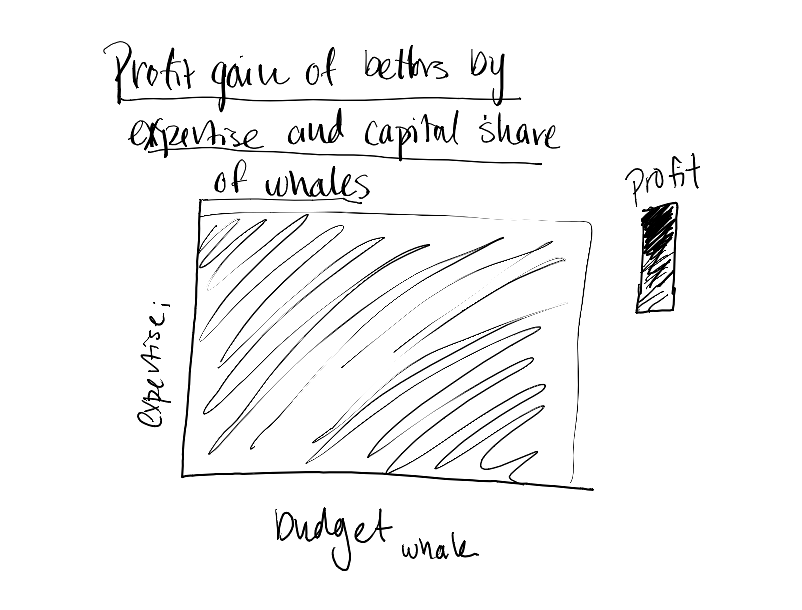 Profit gain of bettors by
expertise and capital share
of whales
Profit
expertise i
budget whale